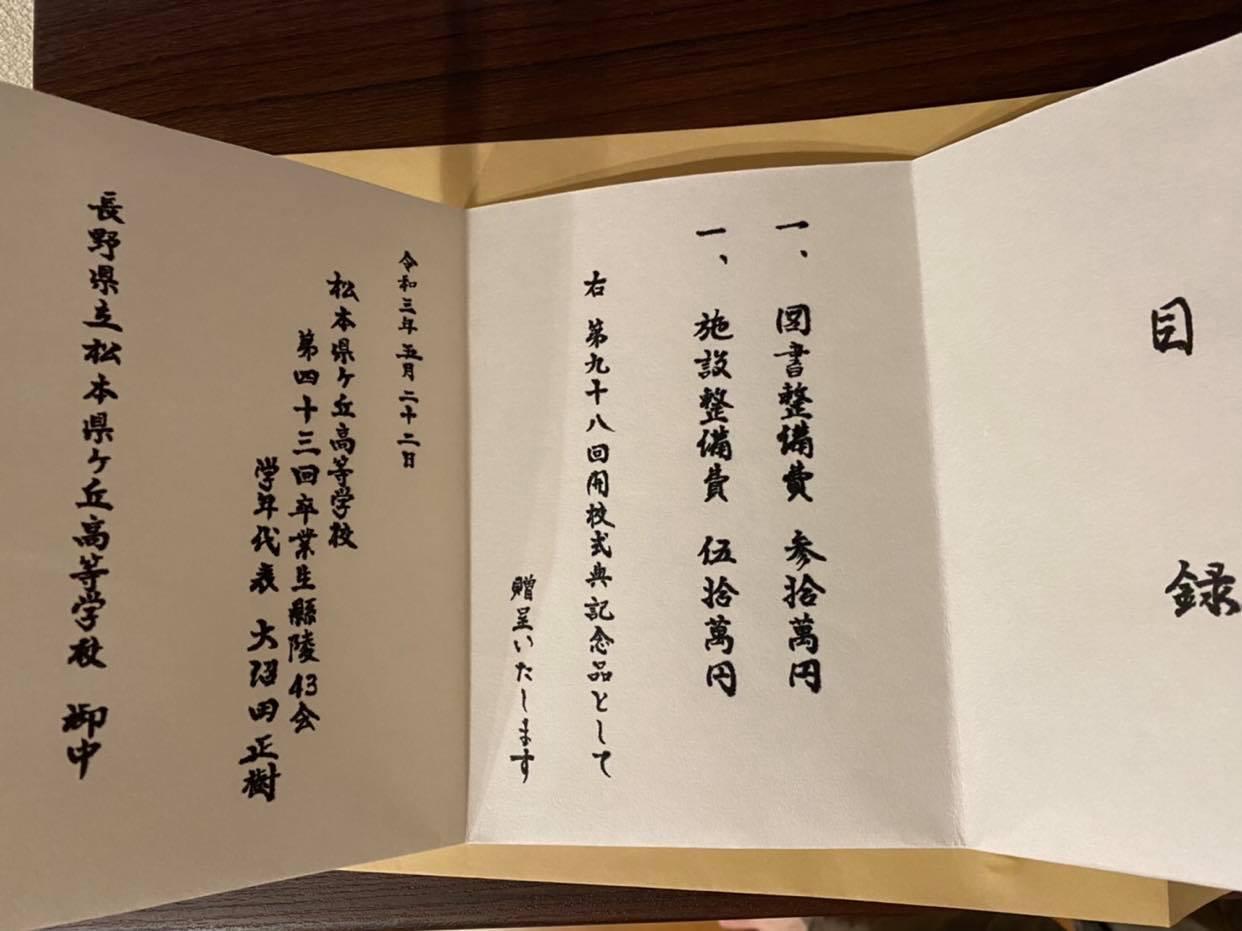 目録
一、図書整備費 参拾萬円
一、施設整備費 伍拾萬円
右 第九十八回開校式典記念品として
贈呈いたします
令和三年五月二十二日
松本県ヶ丘高等学校
第四十三回卒業生縣陵43会
学年代表 大沼田正樹
長野県立松本県ヶ丘高等学校 御中